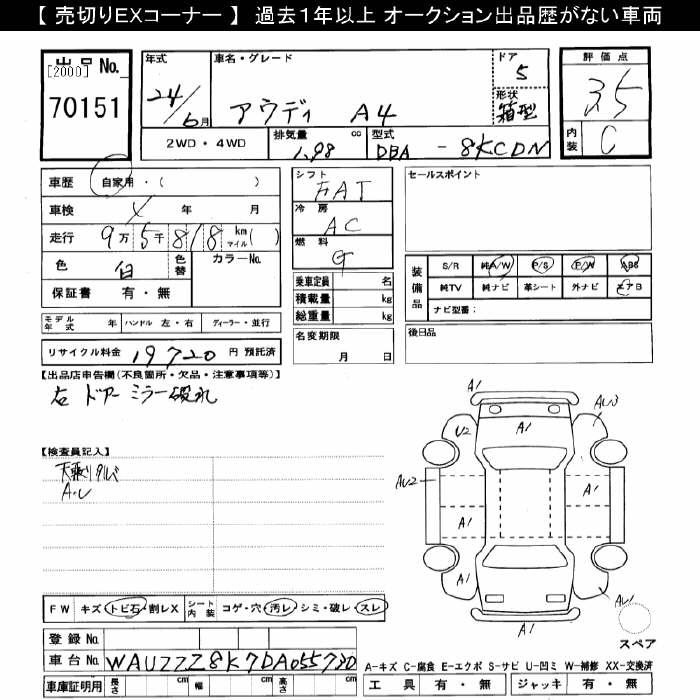 【 売切りEXコーナー 】 過去1年以上 オークション出品歴がない車両
出品 No.
[2000]
70151
年式
24/6月
車名・グレード
アウディ A4
ドア
5
形状
箱型
評価点
3.5
内装 C
2WD・4WD
排気量 cc
1.98
型式
DBA - 8KCDN
車歴 自家用・( )
車検 X 年 月
走行 9万5千818 km マイル( )
色 白 色替 カラーNo.
保証書 有・無
シフト
FAT
冷房
AC
燃料
G
乗車定員 名
積載量 kg
総重量 kg
セールスポイント
装備品
S/R 純A/W P/S P/W ABS
純TV 純ナビ 革シート 外ナビ エアB
ナビ型番:
モデル年式 年 ハンドル 左・右 ディーラー・並行
リサイクル料金 19720 円 預託済
名変期限
月 日
後日品
【出品店申告欄(不良箇所・欠品・注意事項等)】
右 ドアーミラー破れ
【検査員記入】
天張りタルミ
A.U
A1
U2
A1
AU3
AU2
A1
A1
A1
A1
A1
AU1
A1
スペア
FW キズ・トビ石・割レX シート内装 コゲ・穴・汚レ・シミ・破レ・スレ
登録 No.
車台 No. WAUZZZ8K7DA055720
車庫証明用 長さ cm 幅 cm 高さ cm
A-キズ C-腐食 E-エクボ S-サビ U-凹ミ W-補修 XX-交換済
工具 有・無 ジャッキ 有・無